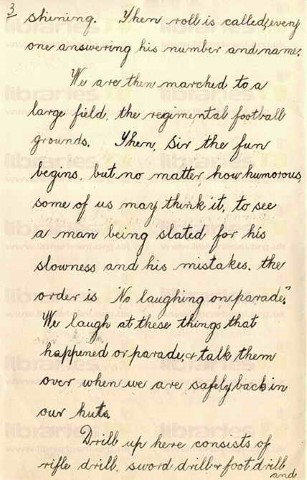 3 shining. Then roll is called, every
one answering his number and name.
We are then marched to a
large field, the regimental football
grounds. Then, Sir the fun
begins, but no matter, how humorous
some of us may think it, to see
a man being slated for his
slowness and his mistakes, the
order is "No laughing on parade."
We laugh at these things that
happened or parade, & talk them
over when we are safely back in
our huts
Drill up here consists of
rifle drill, sword drill & foot drill
and